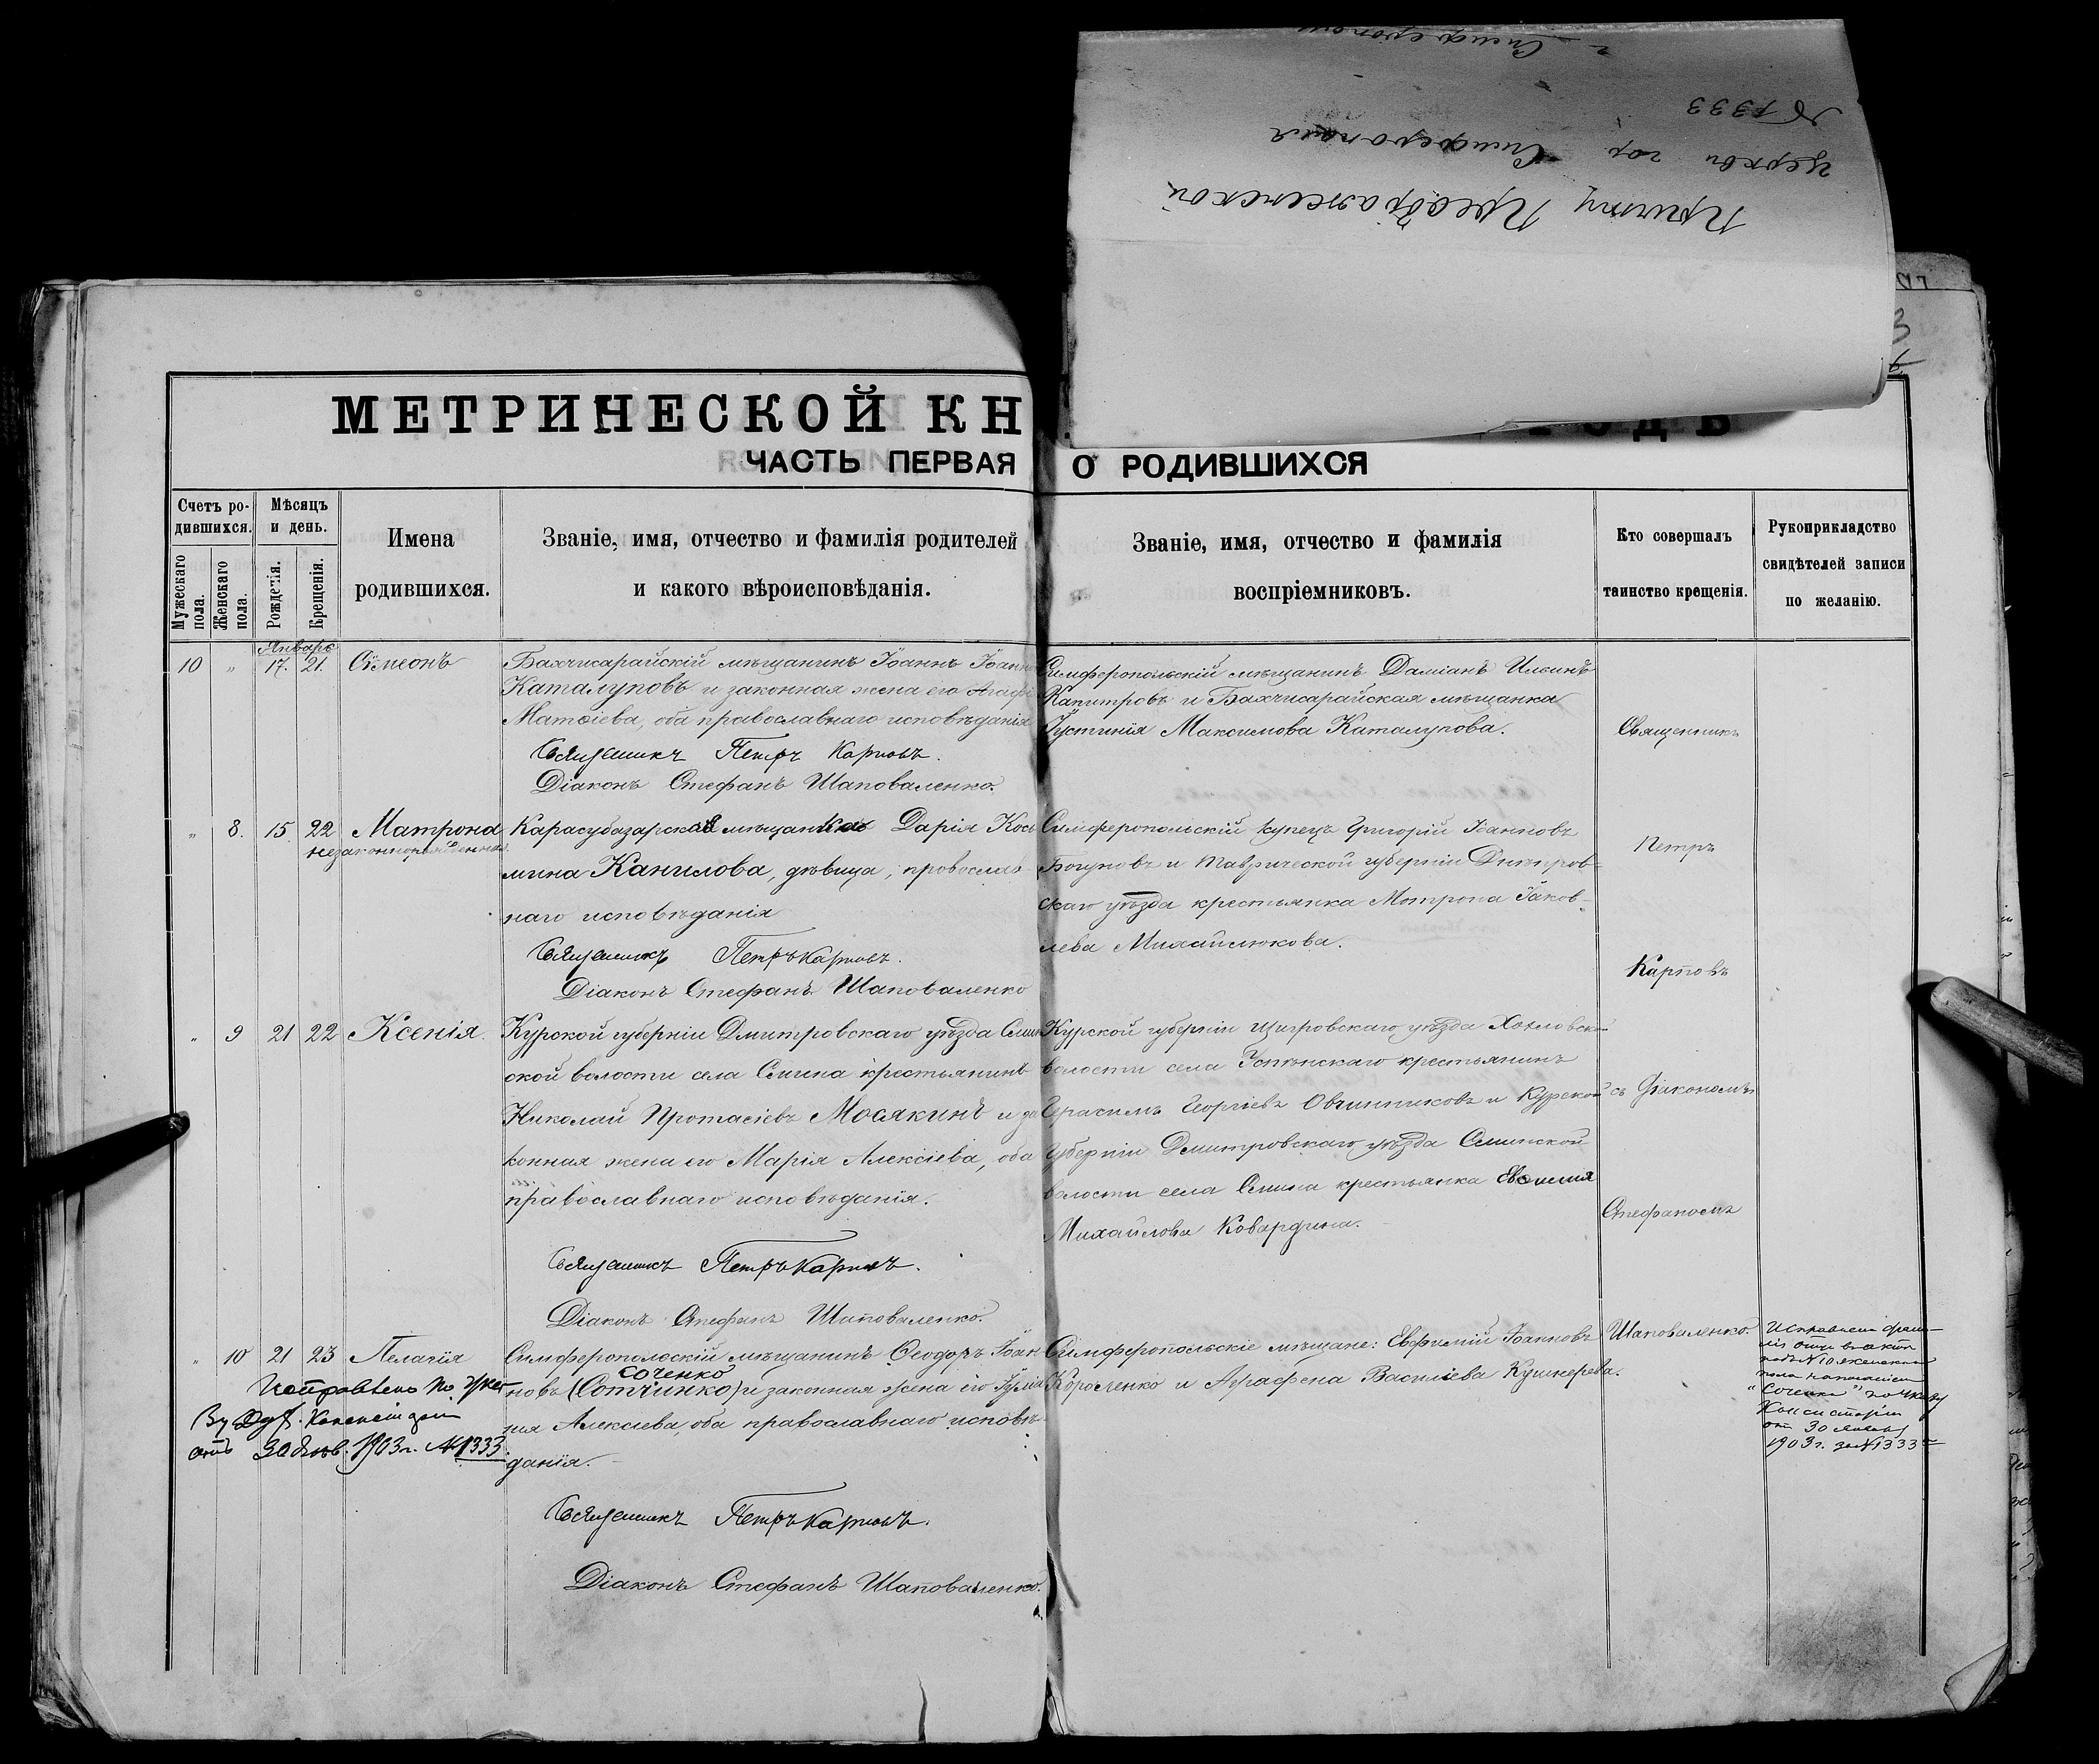 г. Симферополь
№ 1333
церкви гор Симферополя
Причту Преображенской
МЕТРИЧЕСКОЙ КН
ГОДЪ
ЧАСТЬ ПЕРВАЯ О РОДИВШИХСЯ
Счетъ ро-
дившихся.
Мужескаго
пола.
Женскаго
пола.
Мѣсяцъ
и день.
Рожденія.
Крещенія.
Имена
родившихся.
Званіе, имя, отчество и фамилія родителей
и какого вѣроисповѣданія.
Званіе, имя, отчество и фамилія
воспріемниковъ.
Кто совершалъ
таинство крещенія.
Рукоприкладство
свидѣтелей записи
по желанію.
Январь
10 „ 17. 21. Сѵмеонъ
Бахчисарайскій мѣщанинъ Іоаннъ Іоанно
Каталуповъ и законная жена его Агафі
Матѳіева, оба православнаго исповѣданія
Священникъ Петръ Карповъ.
Діаконъ Стефанъ Шаповаленко.
Симферопольскій мѣщанинъ Даміанъ Ильинъ
Капитровъ и Бахчисарайская мѣщанка
Іустинія Максимова Каталупова.
„ 8. 15 22 Матрона
незаконнорожденная.
Карасубазарская мѣщанка Дарія Кось
мина Канилова, дѣвица, православ
наго исповѣданія
Священникъ Петръ Карповъ.
Діаконъ Стефанъ Шаповаленко
Симферопольскій купецъ Григорій Іоанновъ
Богуновъ и Таврической губерніи Днѣпров-
скаго уѣзда крестьянка Матрона Іаков-
лева Михайлюкова.
„ 9 21 22 Ксенія.
Курской губерніи Дмитровскаго уѣзда Слин
ской волости села Слина крестьянинъ
Николай Протасіевъ Мосякинъ и за
конная жена его Марія Алексіева, оба
православнаго исповѣданія.
Священникъ Петръ Карповъ.
Діаконъ Стефанъ Шаповаленко.
Курской губерніи Щигровскаго уѣзда Хохловской
волости села Успѣнскаго крестьянинъ
Герасимъ Георгіевъ Овчинниковъ и Курской
губерніи Дмитровскаго уѣзда Слинской
волости села Слина крестьянка Евѳимія
Михайлова Ковардина.
„ 10 21 23 Пелагія
Исправлено по Указу
Дух. Консисторіи
отъ 30 Янв. 1903 г. № 1333.
Симферопольскій мѣщанинъ Ѳеодоръ Іоан
Соченко
новъ (Сотчинко) и законная жена его Іулiа
нія Алексіева, оба православнаго исповѣ-
данія.
Священникъ Петръ Карповъ.
Діаконъ Стефанъ Шаповаленко.
Симферопольскіе мѣщане: Евфимій Іоанновъ
Короленко и Аграфена Василіева Кушнерева.
Священникъ
Петръ
Карповъ
съ Діакономъ
Стефаномъ
Шаповаленко.
Исправлени фами-
ліи отца въ актѣ
подъ № 10 женскаго
пола
"Соченко" по указу
Консисторіи
отъ 30 Января
1903 г. за № 1333